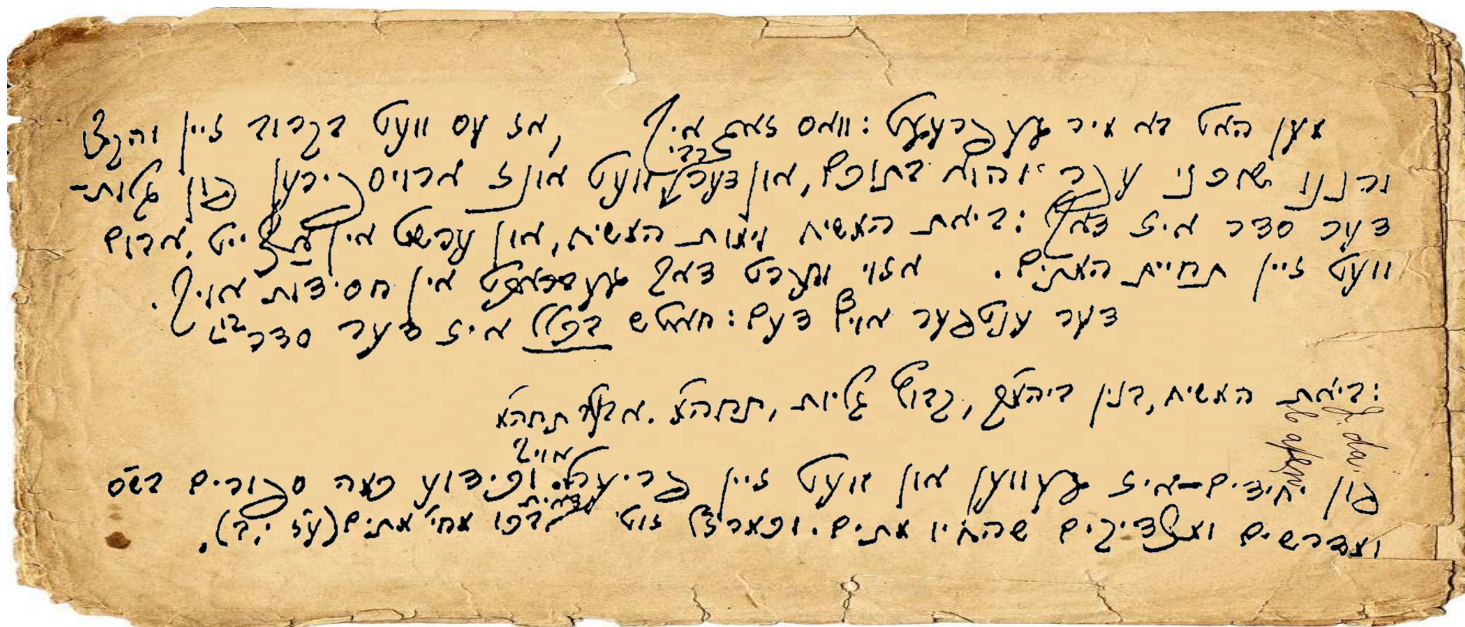 מען האט בא מיר געפרעגט: וואס זאג איך, אז עס וועט בקרוב זיין והקיצו
ורננו שוכני עפר והוא בתוכם, און דער רבי וועט אונז ארויספירען פון גלות-
דער סדר איז דאך: ביאת המשיח ימות המשיח, און ערשט אין ארום
וועט זיין תחיית המתים. אזוי ווערט דאך געבראכט אין חסידות אויך.
דער ענטפער אויף דעם: חאטש בכלל איז דער סדר
ביאת המשיח, בנין ביהמ"ק, קבוץ גליות, תחה"מ. אבער תחה"מ
פון יחידים-איז געווען און וועט זיין אויך פריער. וכידוע כמה ספורים בש"ס
ומדרשים ומצדיקים שהחיו מתים. וכמארז"ל זוטי דאית בכו מחי' מתים (ע"ז י, ב).